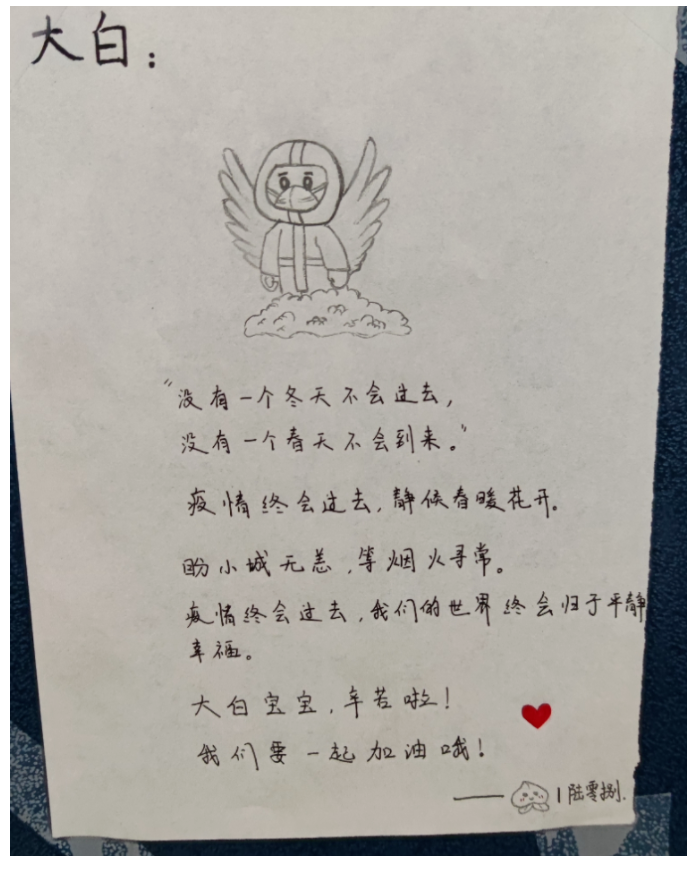 大白：
“没有一个冬天不会过去，
没有一个春天不会到来。”
疫情终会过去，静候春暖花开。
盼小城无恙，等烟火寻常。
疫情终会过去，我们的世界终会归于平静
幸福。
大白宝宝，辛苦啦！
我们要一起加油哦！
——1陆零捌.